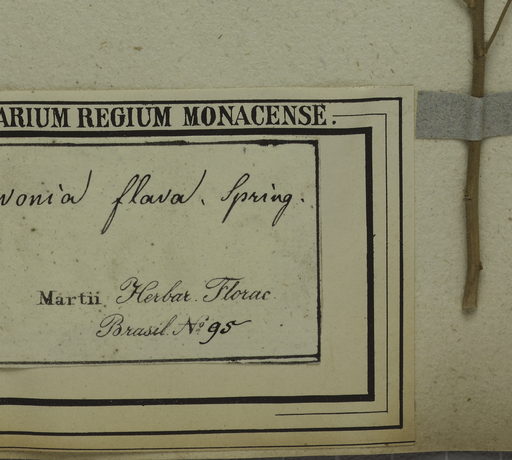 ARIUM REGIUM MONACENSE.
vonia flava. Spring.
Martii Herbar. Florac
Brasil. No 95